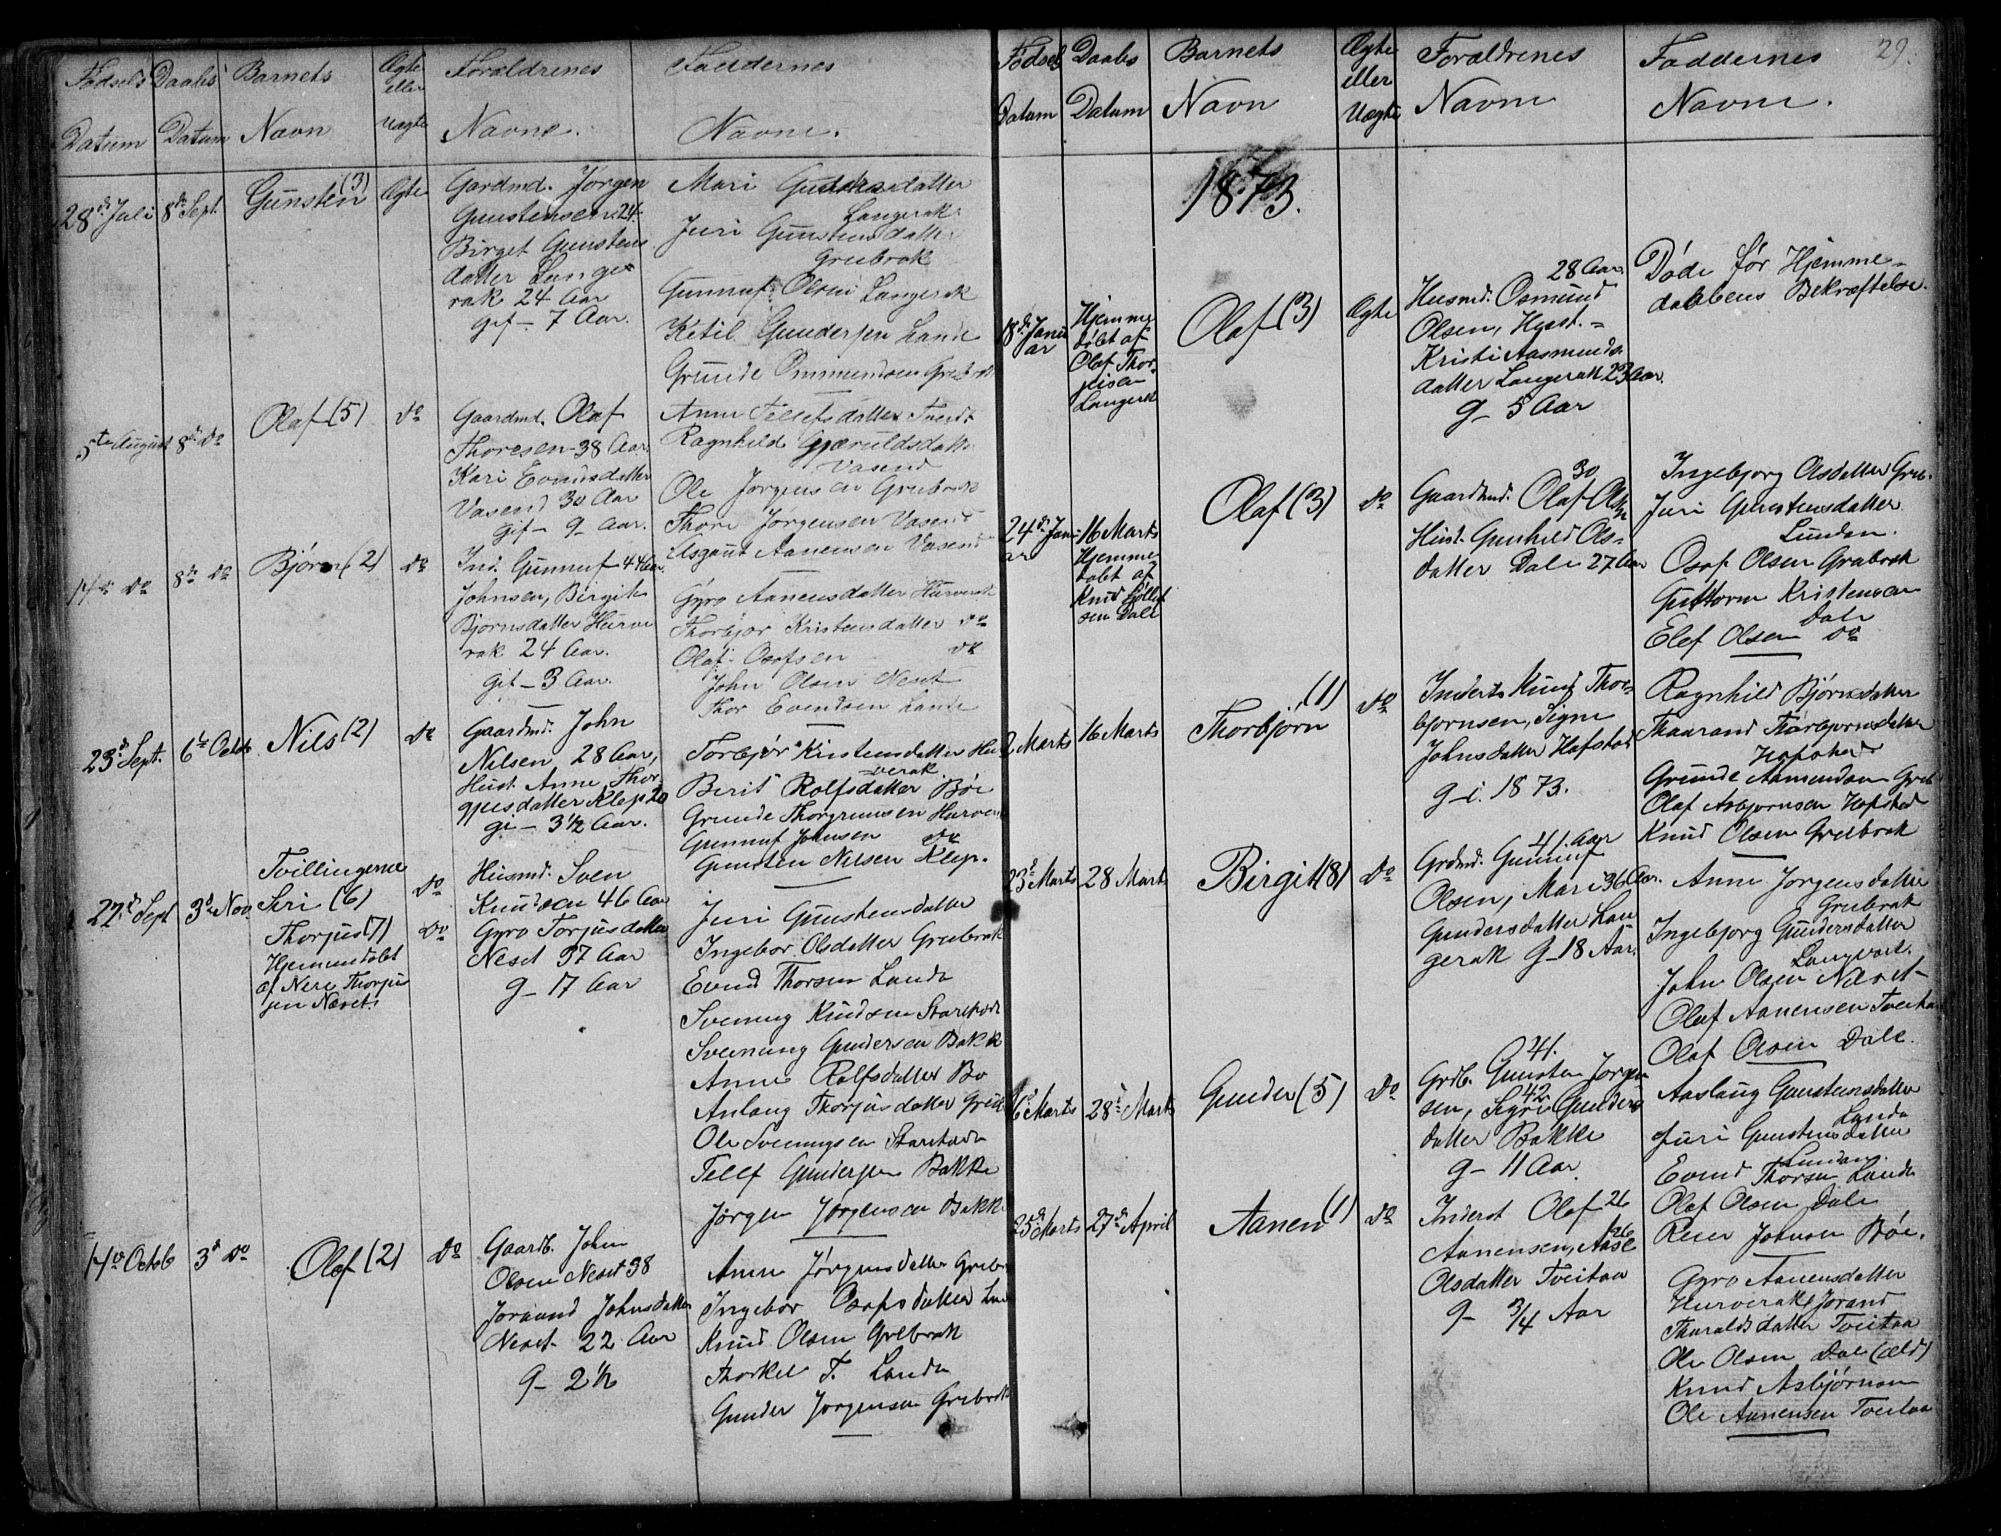 Fødsels Daabs Barnets Ægte Forældrenes Faddernes
eller
Datum Datum Navn Uægte Navne. Navne.
28de Juli 8de Sept. Gunsten (3) Ægte
Gardmd. Jørgen
Gunstensen 24
Birget Gunstens
datter Lange
rak 24 Aar
gif - 7 Aar.
Mari
Langerak
Juri Gunstensdatter
Grubrok
Gunnuf Olsen Langerak
Ketil Gundersen Lande
Grunde Ommundsen Grubrok
5te August 8de do Olaf (5) do
Gaardmd. Olaf
Thoresen 38 Aar.
Kari Evindsdatter
Vasend 30 Aar
gif - 9 Aar.
Anne Tellefsdatter Tveit
Ragnhild Gjæruldsdatter
Vasend
Ole Jørgensen Grubrok
Thore Jørgensen Vasend
Asgaut Aanensen Vasend
14de do 8de do Bjørn (2) do
Ind. Gunnuf 44 Aar.
Johnsen, Birgit
Bjørnsdatter Hurve
rak 24 Aar.
gif - 3 Aar.
Gyro Aanensdatter Hurverak
Thorbjør Kristensdatter do
Olaf Osofsen do
John Olsen Neset
Thor Evendsen Lande
23de Sept. 6te Octob. Nils (2) do
Gaardmd. John
Nilsen 28 Aar,
Hust. Anne Thor-
gjusdatter Klep 20
gi - 3½ Aar.
Torbjør Kristensdatter Hur
verak
Berit Rolfsdatter Bøe
Grunde Thorgrumsen Hurve
Gunnuf Johnsen do
Gunsten Nilsen Klep.
Tvillingerne
22de Sept 3de Nov. Siri (6) do
Thorjus (7) do
Hjemmedøbt
af Neri Thorju
sen Næset.
Husmd. Sven
Knudsen 46 Aar
Gyro Torjusdatter
Neset 37 Aar
g - 17 Aar
Juri Gunstensdatter
Ingebor Olsdatter Grubrok
Evind Thorsen Lande
Svenung Knudsen
Svenung Gundersen Bakke
Anne Rolfsdatter Bø
Anlaug Thorjusdatter
Ole Svenungsen
Tellef Gundersen Bakke
Jørgen Jørgensen Bakke
14de Octob 3de do Olaf (2) do
Gaardb. John
Olsen Neset 38
Joraand Johnsdatter
Neset 22 Aar
g - 2½
Anne Jørgensdatter Grubr
Ingebor Osofsdatter
Knud Olsen Grubrok
Thorkel T. Lande
Gunder Jørgensen Grubrok
29.
Fødsels Daabs Barnets Ægte Forældrenes Faddernes
eller
Datum Datum Navn Uægte Navne Navne.
1873.
18de Janu
ar
Hjemme
døbt af
Olaf Thor
Langerak
Olaf (3) Ægte
28 Aar.
Husmd. Osmund
Olsen, Hust.
Kristi Aasmunds
datter Langerak 23 Aar.
g - 5 Aar
Døde før Hjemme-
daabens Bekræftelse.
24de Janu
ar
16 Marts
Hjemme
døbt af
Knud
sen Dale
Olaf (3) do
30
Gaardmd. Olaf Olsen
Hust. Gunhild Ols-
datter Dale 27 Aar
Ingebjorg Olsdatter Grub.
Juri Gunstensdatter
Lunden.
Osof Olsen Grubrok
Guttorm Kristensen
Dale
Elef Olsen do
2 Marts 16 Marts Thorbjørn (1) do
Inderst Knud Thor-
bjørnsen, Signe
Johnsdatter Hafstad
g - i. 1873.
Ragnhild Bjørnsdatter
Thaarand Thorbjørnsdatter
Hofstad
Grunde Aamundsen Grub
Olaf Asbjørnsen Hofstad
Knud Olsen Grubrok
23de Marts 28 Marts Birgit (8) do
41. Aar
Grdmd. Gunnuf
Olsen, Mari 36 Aar.
Gundersdatter Lan
gerak g - 18 Aar.
Anne Jørgensdatter
Grubrok
Ingebjorg Gundersdatter
Langerak.
John Olsen Næset
Olaf Aanensen Tveitaa
Olaf Olsen Dale.
6de Marts 28de Marts Gunder (5) do
41.
Grdb. Gunsten Jørgen
42
sen, Sigri Gunders
datter Bakke
g - 11 Aar
Aaslaug Gunstensdatter
Lande
Juri Gunstensdatter
Lunden.
Evind Thorsen Lande
Olaf Olsen Dale
Reier Johnsen Bøe.
25de Marts 27de April Aanen (1) do
Inderst Olaf 26
26
Aanensen, Aase
Olsdatter Tveitaa
g - ¾ Aar
Gyro Aanensdatter
Hurverak, Jorand
Tharaldsdatter Tveitaa
Ole Olsen Dale (æld)
Knud Asbjørnsen
Ole Aanensen Tveitaa